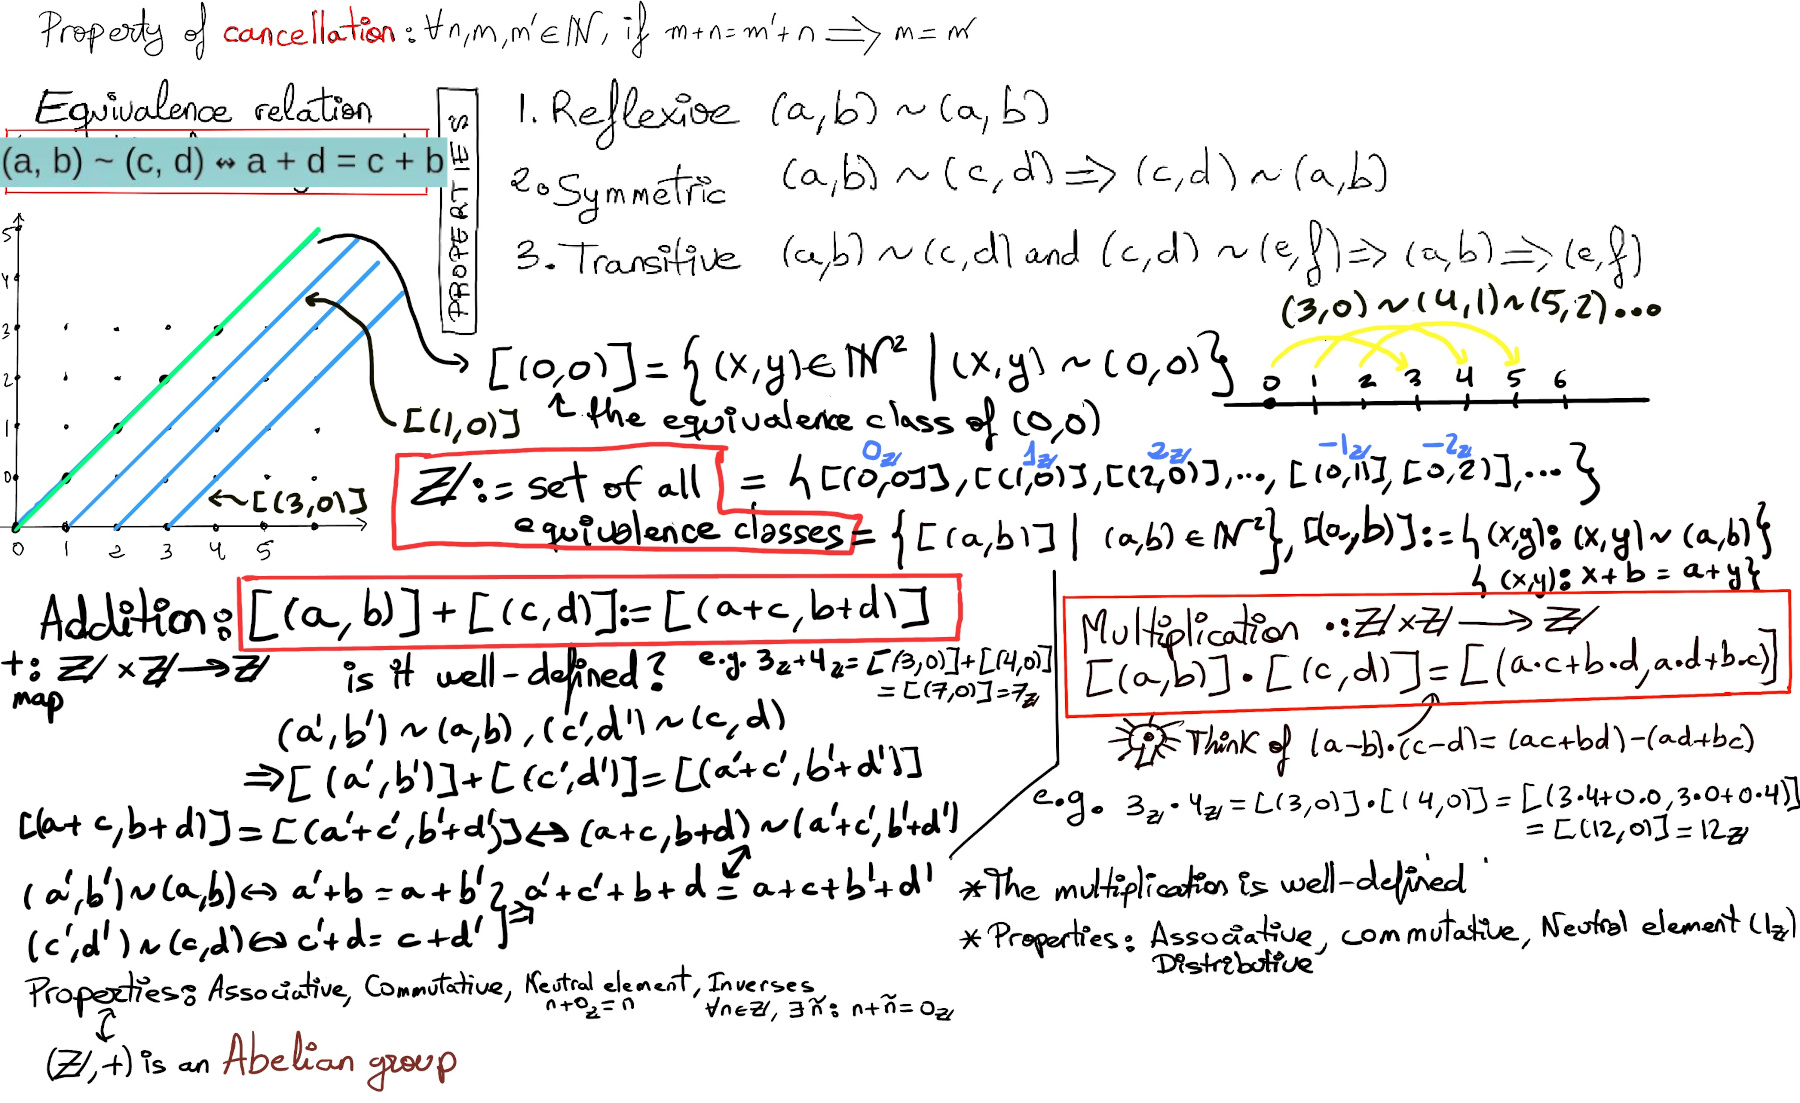 Property of cancellation: ∀n,m,m'∈ℕ, if m+n=m'+n ⟹ m=m'
Equivalence relation
(a, b) ~ (c, d) ↔ a + d = c + b
PROPERTIES
1. Reflexive (a,b) ~ (a,b)
2. Symmetric (a,b) ~ (c,d) ⟹ (c,d) ~ (a,b)
3. Transitive (a,b) ~ (c,d) and (c,d) ~ (e,f) ⟹ (a,b) ⟹ (e,f)
(3,0) ~ (4,1) ~ (5,2)...
0 1 2 3 4 5 6
5
4
3
2
1
0
0 1 2 3 4 5
[(0,0)] = {(x,y)∈ℕ² | (x,y) ~ (0,0)}
↑ the equivalence class of (0,0)
[(1,0)]
[(3,0)]
0ℤ 1ℤ 2ℤ -1ℤ -2ℤ
ℤ := set of all equivalence classes
= {[(0,0)], [(1,0)], [(2,0)], ..., [(0,1)], [0,2)], ...}
= {[(a,b)] | (a,b)∈ℕ²}, [(a,b)] := {(x,y): (x,y) ~ (a,b)}
{(x,y): x+b = a+y}
Addition: [(a,b)] + [(c,d)] := [(a+c, b+d)]
+: ℤ × ℤ → ℤ
map
is it well-defined?
e.g. 3ℤ+4ℤ = [(3,0)]+[(4,0)]
= [(7,0)] = 7ℤ
(a',b') ~ (a,b), (c',d') ~ (c,d)
⟹ [(a',b')] + [(c',d')] = [(a'+c', b'+d')]
[(a+c, b+d)] = [(a'+c', b'+d')] ⟺ (a+c, b+d) ~ (a'+c', b'+d')
(a',b') ~ (a,b) ⟺ a'+b = a+b' ⟹ a'+c'+b+d = a+c+b'+d'
(c',d') ~ (c,d) ⟺ c'+d = c+d'
Properties: Associative, Commutative, Neutral element, Inverses
n+0ℤ=n ∀n∈ℤ, ∃ñ: n+ñ=0ℤ
(ℤ,+) is an Abelian group
Multiplication ·: ℤ × ℤ → ℤ
[(a,b)] · [(c,d)] = [(a·c+b·d, a·d+b·c)]
Think of (a-b)·(c-d) = (ac+bd)-(ad+bc)
e.g. 3ℤ · 4ℤ = [(3,0)] · [(4,0)] = [(3·4+0·0, 3·0+0·4)]
= [(12,0)] = 12ℤ
* The multiplication is well-defined
* Properties: Associative, commutative, Neutral element (1ℤ)
Distributive